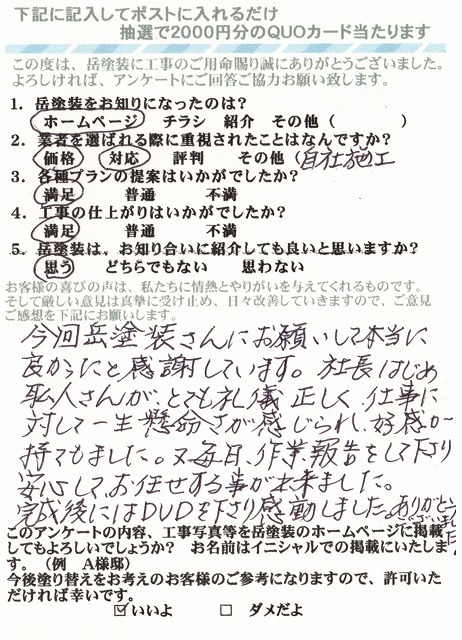 下記に記入してポストに入れるだけ
抽選で2000円分のQUOカード当たります
この度は、岳塗装に工事のご用命賜り誠にありがとうございました。
よろしければ、アンケートにご回答ご協力お願い致します。
1. 岳塗装をお知りになったのは?
ホームページ チラシ 紹介 その他( )
2. 業者を選ばれる際に重視されたことはなんですか?
価格 対応 評判 その他(自社施工
3. 各種プランの提案はいかがでしたか?
満足 普通 不満
4. 工事の仕上がりはいかがでしたか?
満足 普通 不満
5. 岳塗装は、お知り合いに紹介しても良いと思いますか?
思う どちらでもない 思わない
お客様の喜びの声は、私たちに情熱とやりがいを与えてくれるものです。
そして厳しい意見は真摯に受け止め、日々改善していきますので、ご意見
ご感想を下記にお願いします。
今回岳塗装さんにお願いして本当に
良かったと感謝しています。社長はじめ
職人さんが、とても礼儀正しく、仕事に
対して一生懸命さが感じられ、好感が
持てもました。又毎日、作業報告をして下さり
安心して、お任せする事が出来ました。
完成後にはDVDを下さり感動しました。ありがとうございました
このアンケートの内容、工事写真等を岳塗装のホームページに掲載
してもよろしいでしょうか? お名前はイニシャルでの掲載にいたしま
す。(例 A様邸)
今後塗り替えをお考えのお客様のご参考になりますので、許可いた
だければ幸いです。
☑いいよ □ ダメだよ